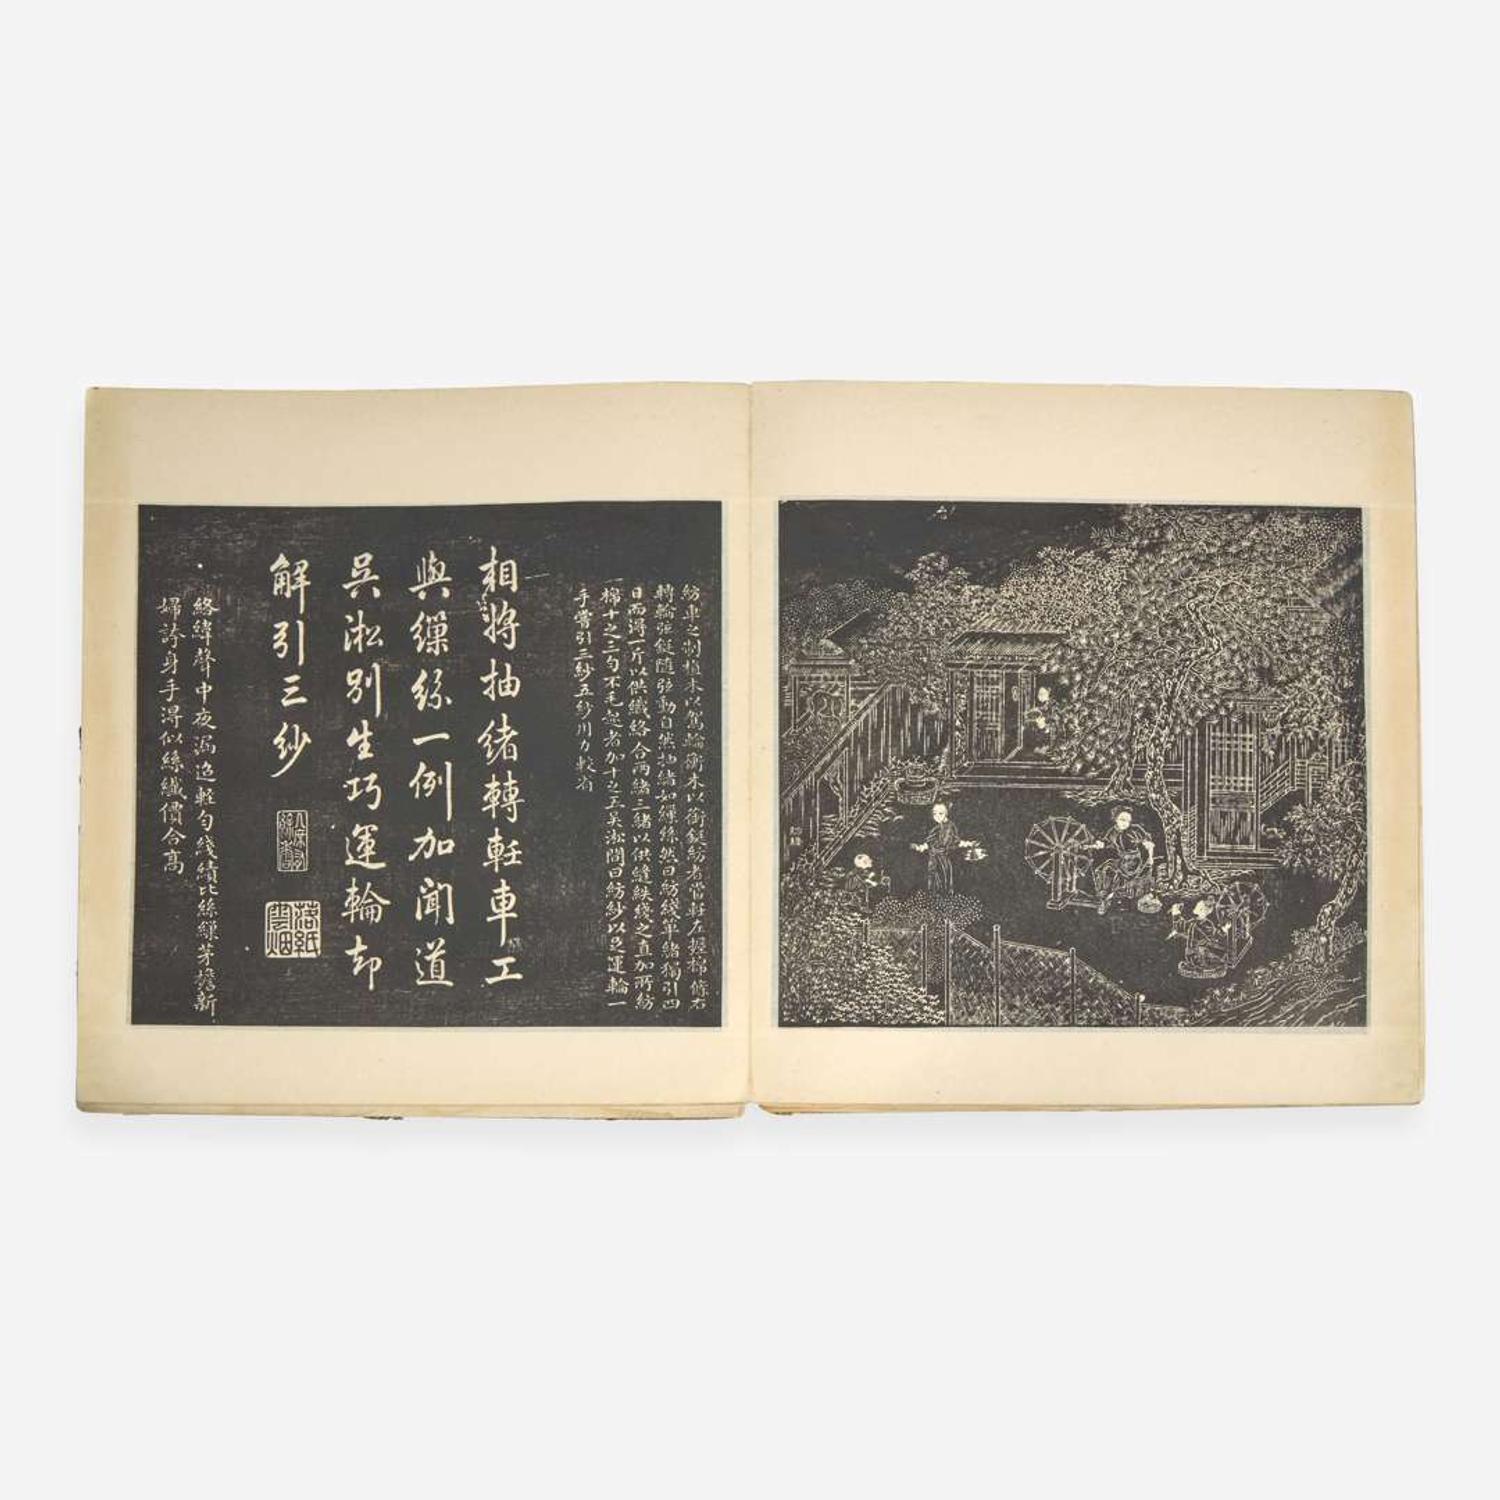 紡線
紡車之制植木以駕輪衡木以衡鋌紡者當軠左握棉條右
轉輪弦鋌隨弦動自然抽緒如繅絲然曰紡綫單緒獨引四
日而得一斤以供織絡合兩緒三緒以供縫紩綫之直加所紡
棉十之三勻不毛起者加十之五吳淞間曰紡紗以足運輪一
手嘗引三紗五紗用力較省
相將抽緒轉軠車工
與繅絲一例加聞道
吳淞別生巧運輪却
解引三紗
落紙雲烟
絡緯聲中夜漏迢軠勻綫績比絲繅茅檐新
婦誇身手得似絲纖價合高